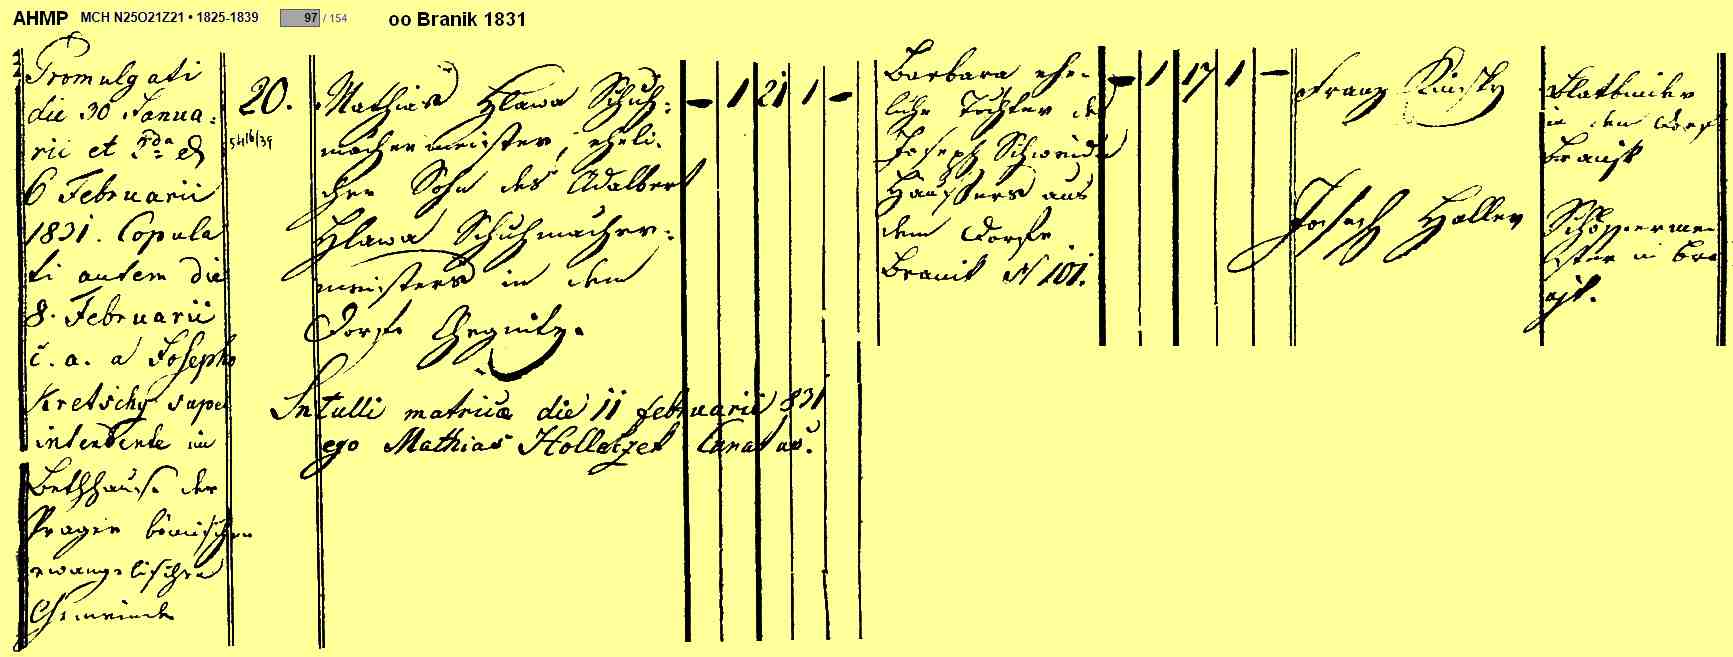 AHMP MCH N25O21Z21 • 1825-1839 97 / 154 oo Branik 1831
Promulgati
die 30 Janua:
rii et 2da d
6 Februarii
1831. Copula
ti autem die
8. Februarii
c. a. a Josepho
Kretschy super
intendente im
Bethhause der
Prager bömischen
ewangelischen
Gemeinde
20.
Mathias Hlawa Schuh:
machermeister, eheli:
cher Sohn des Adalbert
Hlawa Schuhmacher:
meisters in dem
Dorfe
Intulli matricæ die 11 februarii 831
ego Mathias Holletzek
– 1 21 1 –
Barbara ehe-
liche Tochter des
Joseph
Häuslers aus
dem Dorfe
Branik N 101.
– 1 17 1 –
Franz Kinsky
Joseph Haller
Blatbinder
in dem Dorfe
Branik
in Bra
nik.